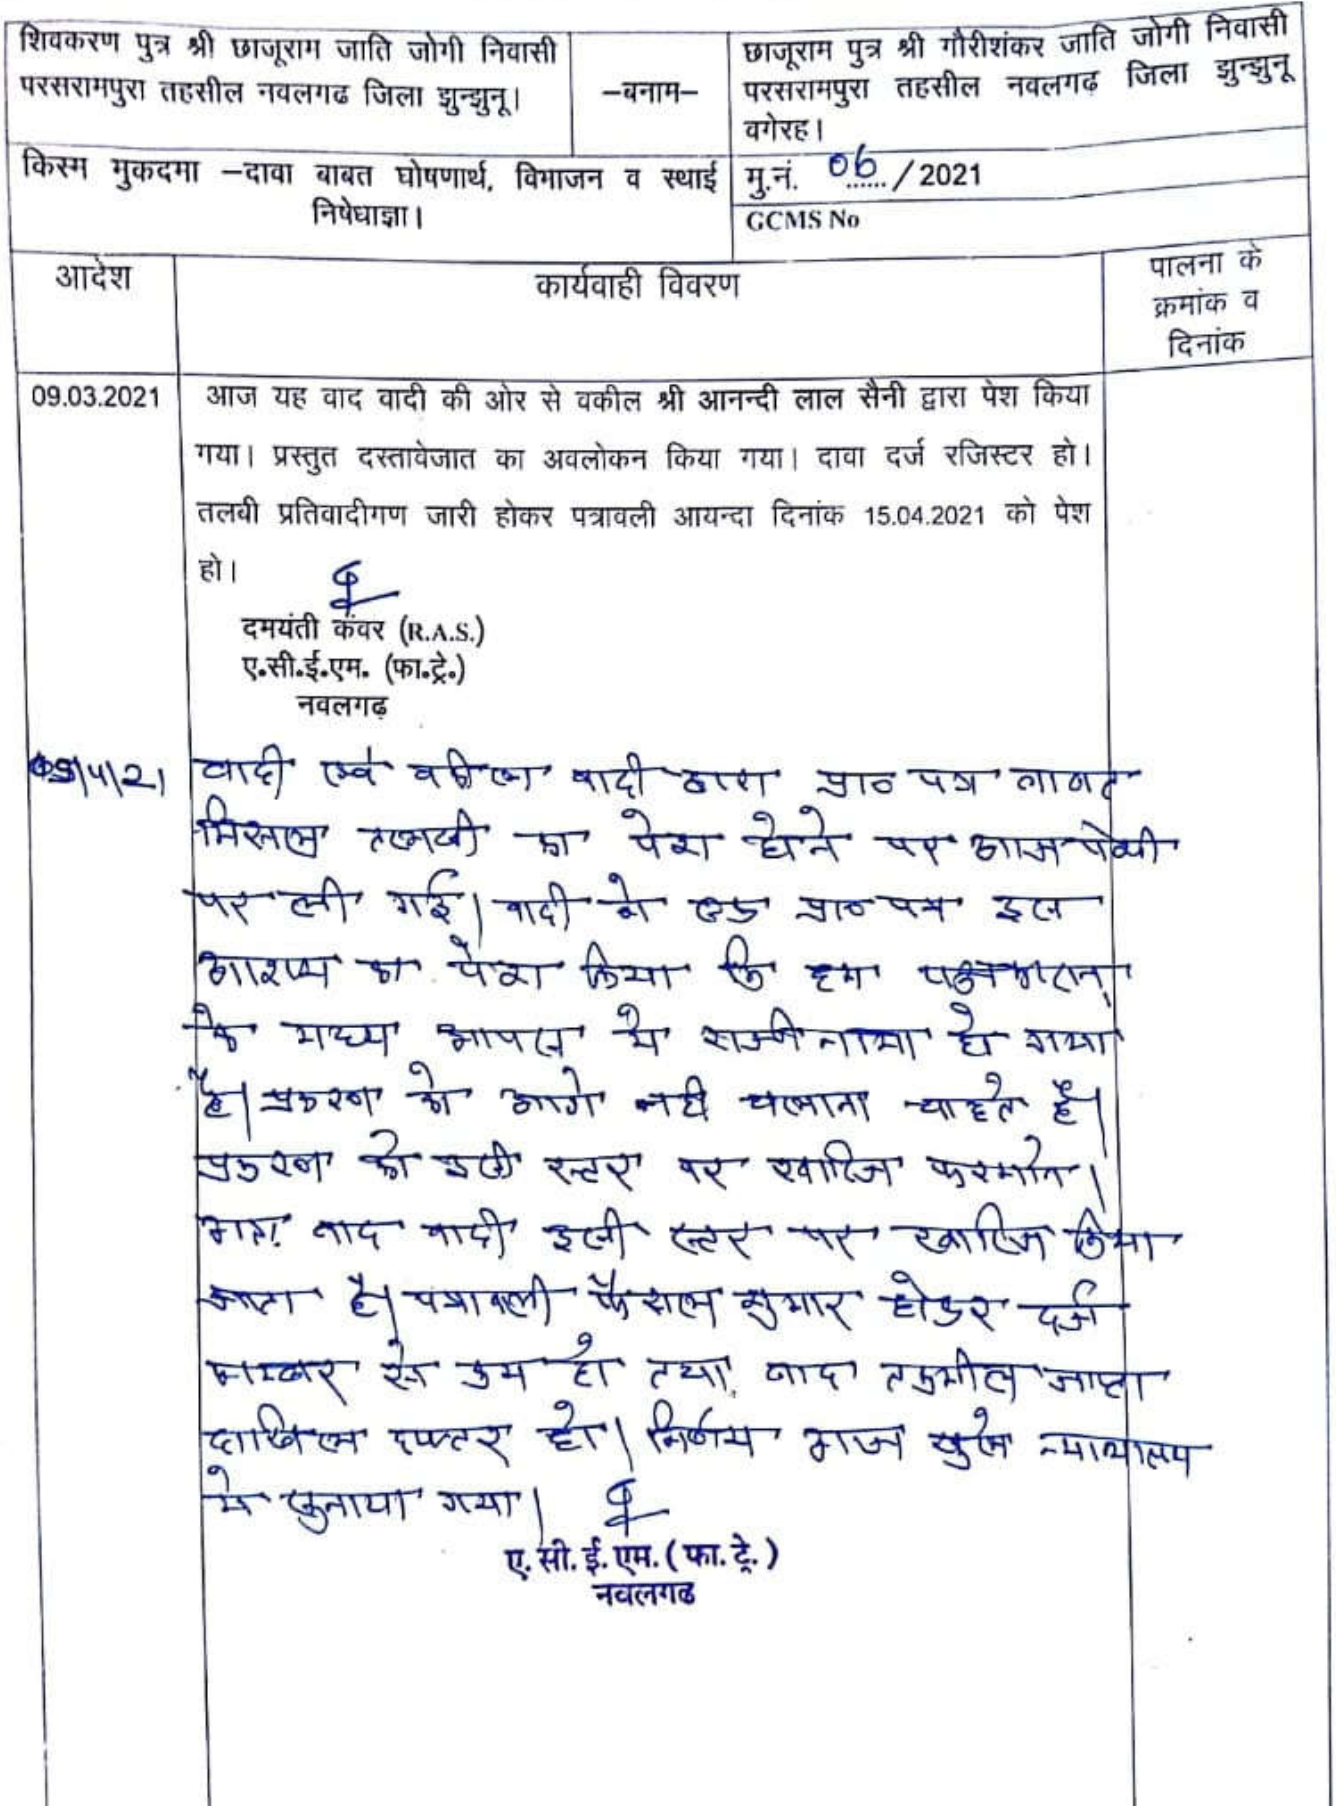 शिवकरण पुत्र श्री छाजूराम जाति जोगी निवासी
परसरामपुरा तहसील नवलगढ जिला झुन्झुनू।
–बनाम–
छाजूराम पुत्र श्री गौरीशंकर जाति जोगी निवासी
परसरामपुरा तहसील नवलगढ़ जिला झुन्झुनू
वगेरह।
किस्म मुकदमा –दावा बाबत घोषणार्थ, विभाजन व स्थाई
निषेधाज्ञा।
मु.नं. 06 ...... / 2021
GCMS No
आदेश
कार्यवाही विवरण
पालना के
क्रमांक व
दिनांक
09.03.2021
आज यह वाद वादी की ओर से वकील श्री आनन्दी लाल सैनी द्वारा पेश किया
गया। प्रस्तुत दस्तावेजात का अवलोकन किया गया। दावा दर्ज रजिस्टर हो।
तलबी प्रतिवादीगण जारी होकर पत्रावली आयन्दा दिनांक 15.04.2021 को पेश
हो।
दमयंती कंवर (R.A.S.)
ए.सी.ई.एम. (फा.ट्रे.)
नवलगढ़
वादी एवं वकील वादी द्वारा प्रा० पत्र
मिसल तलबी का पेश होने पर आज पेशी
पर ली गई। वादी ने एक प्रा० पत्र इस
आशय का पेश किया कि हम पक्षकारान्
के मध्य आपस मे राजीनामा हो गया
है। प्रकरण को आगे नही चलाना चाहते है।
प्रकरण को इसी स्तर पर खारिज फरमावे।
अतः वाद वादी इसी स्तर पर खारिज किया
जाता है। पत्रावली फैसल शुमार होकर दर्ज
नम्बर से कम हो तथा बाद तकमील जाप्ता
दाखिल दफ्तर हो। निर्णय आज खुले न्यायालय
मे सुनाया गया।
ए. सी. ई. एम. ( फा. ट्रे. )
नवलगढ